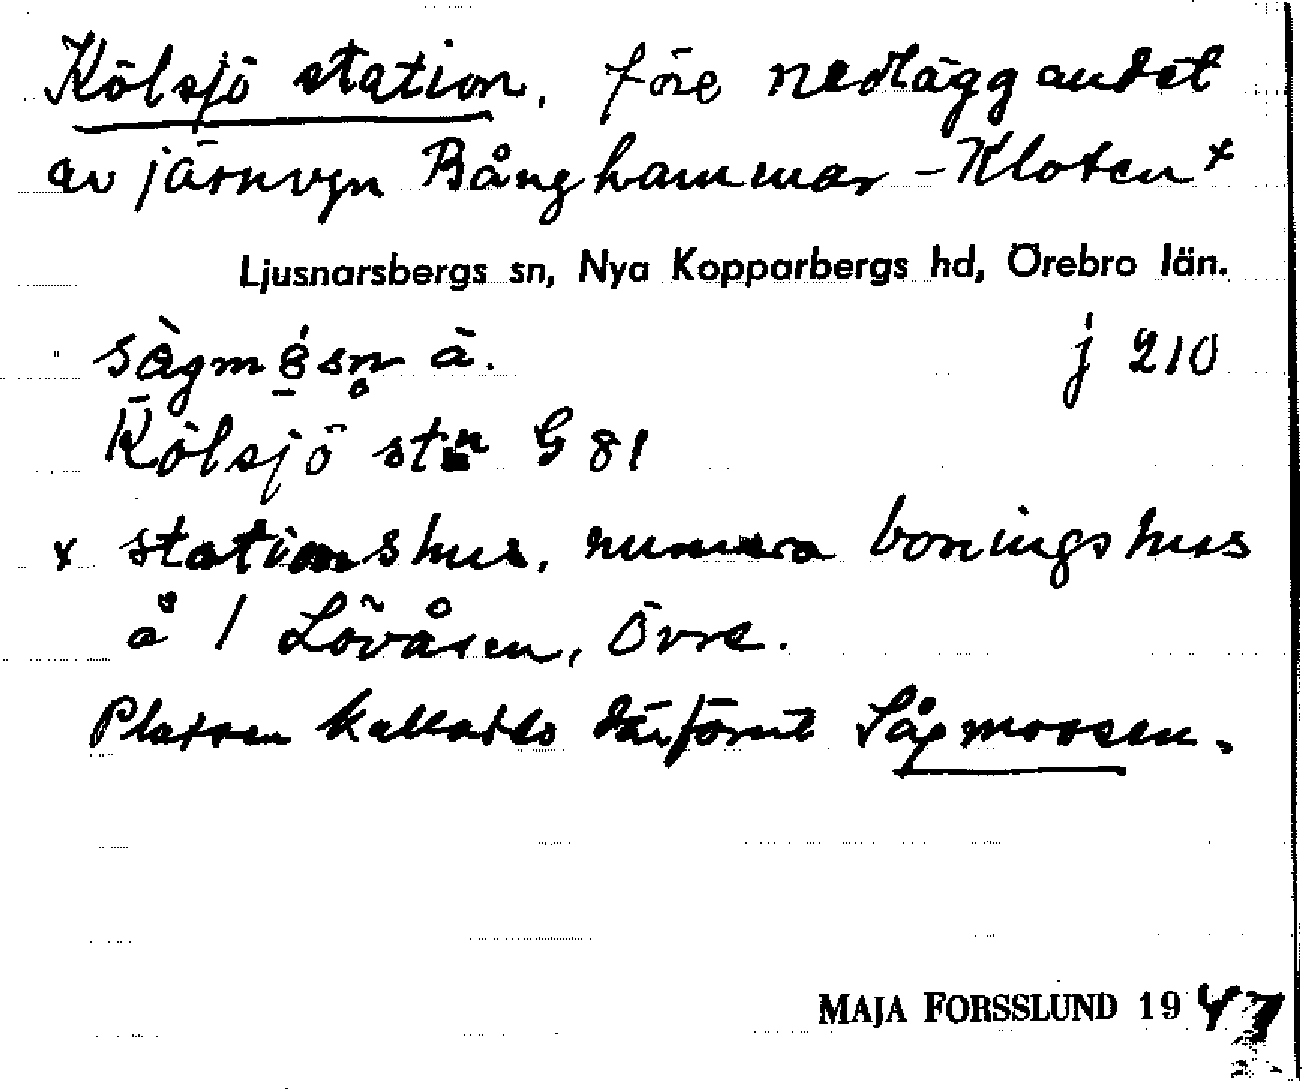 Kölsjö station, före nedläggandet
av järnvgn Bånghammar – Kloten x
Ljusnarsbergs sn, Nya Kopparbergs hd, Örebro län.
j 210
Kölsjö stn G 81
x stationshus, numera boningshus
å 1 Lövåsen, Övre.
Platsen kallades därförut Sågmossen.
MAJA FORSSLUND 1947